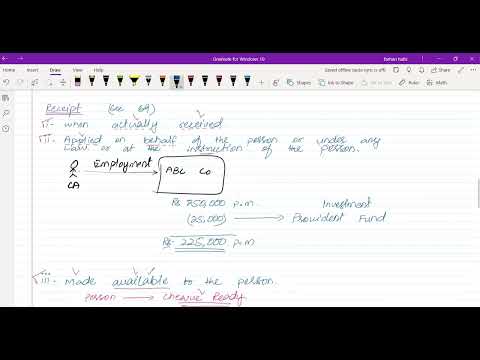 OneNote for Windows 10
farhan hafiz
Home Insert Draw View Help
Saved offline (auto-sync is off)
Share
Ink to Shape
Ink to Text
Math
Receipt (sec 69)
i:- when actually received
ii:- Applied on behalf of the person or under any
Law or at the instruction of the person.
Employment
ABC Co
CA
Rs 250,000 p.m. Investment
(25,000) Provident Fund
Rs. 225,000 p.m
iii:- Made available to the person.
person Cheque Ready